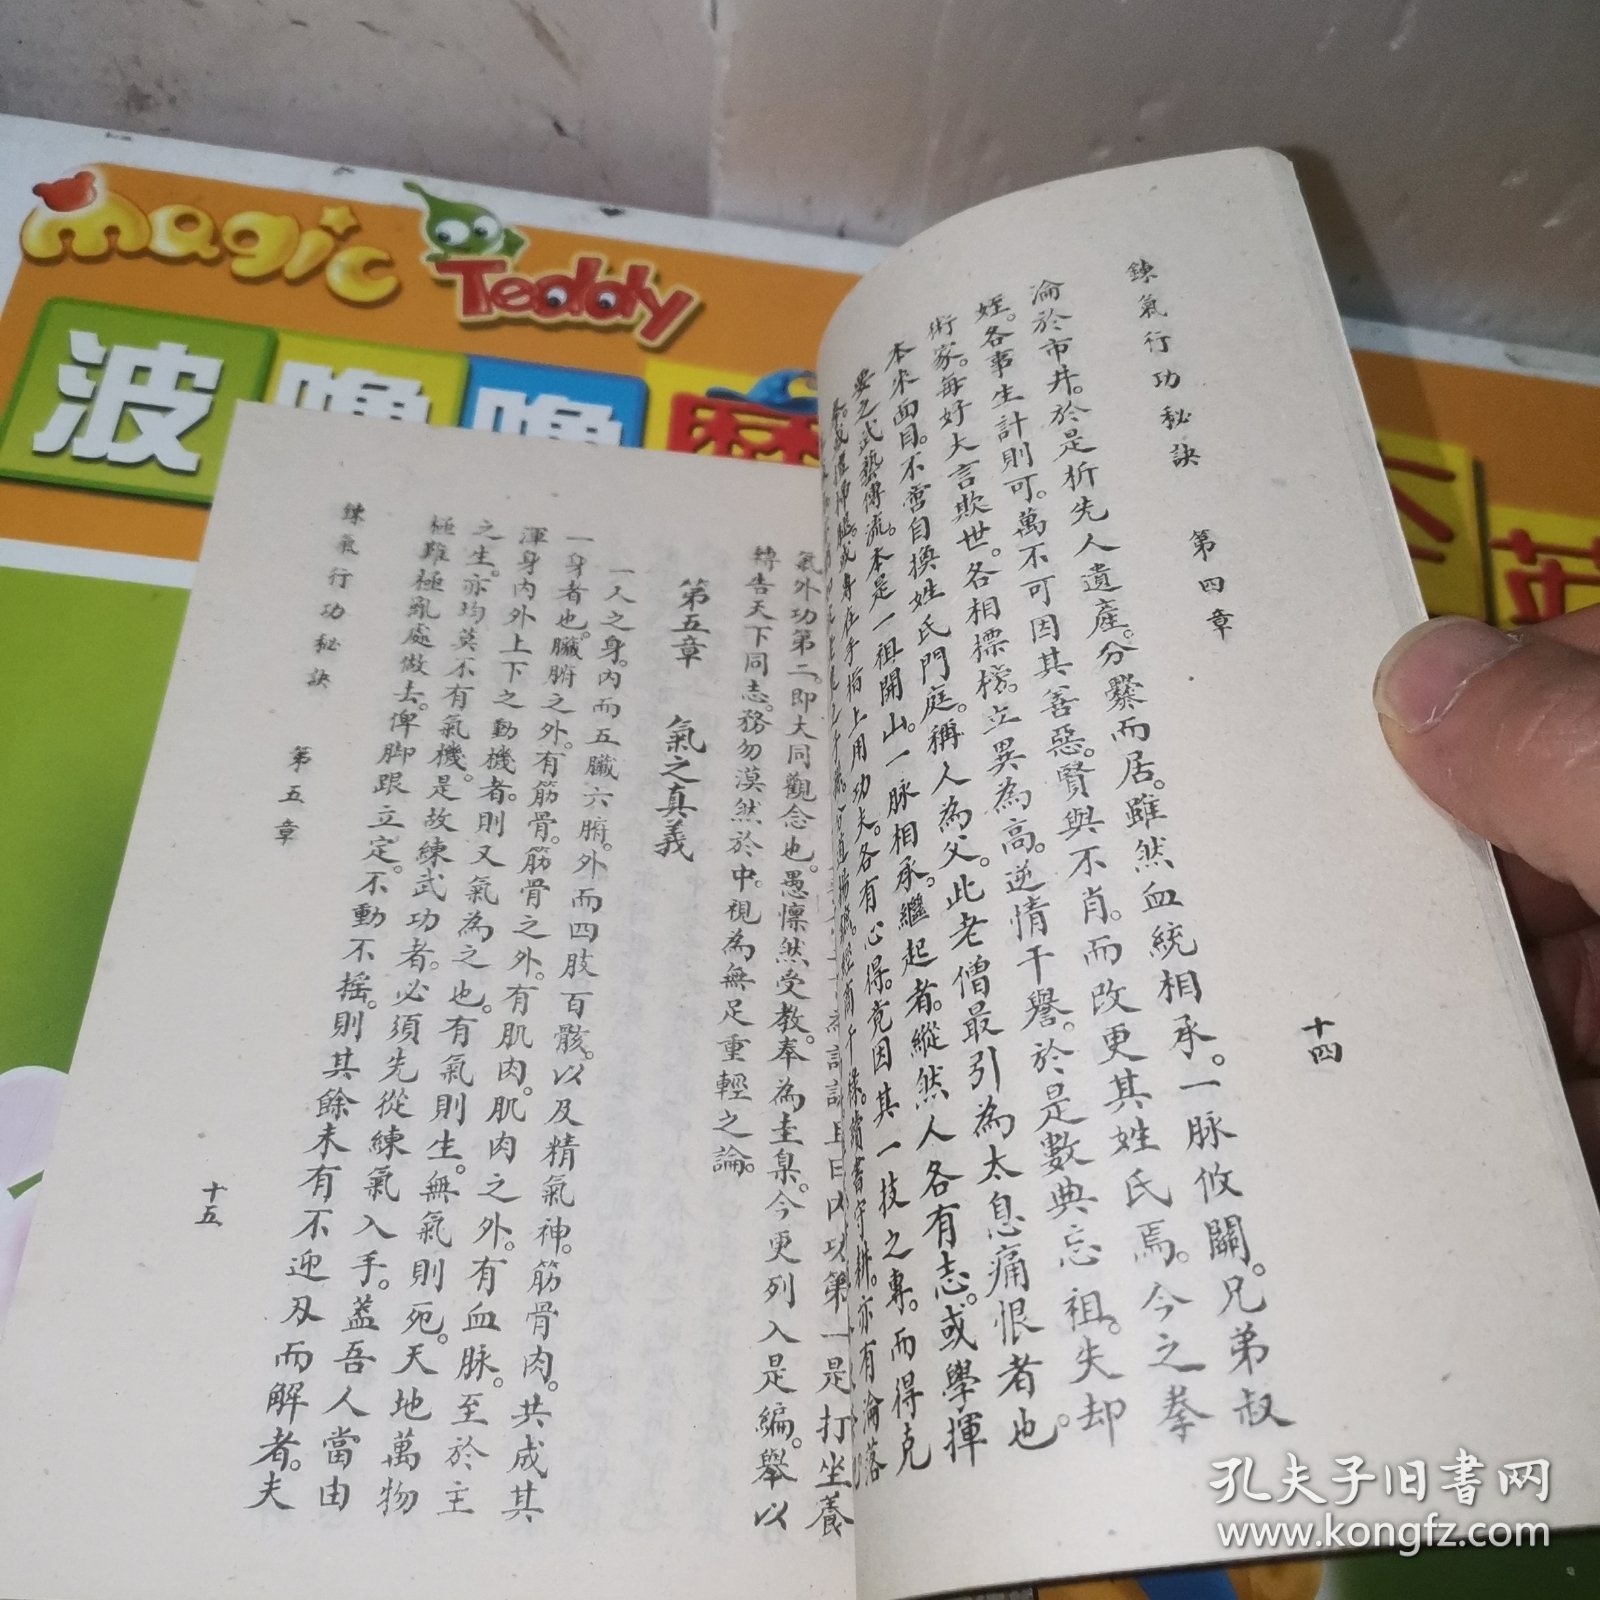 magic Teddy
波嚕嚕
鍊氣行功秘訣 第四章 十四
淪於市井。於是析先人遺產。分爨而居。雖然血統相承。一脈攸關。兄弟叔
姪。各事生計則可。萬不可因其善惡。賢與不肖。而改更其姓氏焉。今之拳
術家。每好大言欺世。各相標榜。立異為高。逆情干譽。於是數典忘祖。失却
本來面目。不啻自換姓氏門庭。稱人為父。此老僧最引為太息痛恨者也。
要之武藝傳流。本是一祖開山。一脈相承。繼起者。縱然人各有志。或學揮
在手指上用功夫。各有心得。竟因其一技之專。而得克
讀書守耕。亦有淪落
功第一是打坐養
氣外功第二。即大同觀念也。愚懍然受教。奉為圭臬。今更列入是編。舉以
轉告天下同志。務勿漠然於中。視為無足重輕之論。
第五章 氣之真義
一人之身。內而五臟六腑。外而四肢百骸。以及精氣神。筋骨肉。共成其
一身者也。臟腑之外。有筋骨。筋骨之外。有肌肉。肌肉之外。有血脈。至於主
渾身內外上下之動機者。則又氣為之也。有氣則生。無氣則死。天地萬物
之生。亦均莫不有氣機。是故練武功者。必須先從練氣入手。蓋吾人當由
極難極亂處做去。俾脚跟立定。不動不搖。則其餘未有不迎刃而解者。夫
鍊氣行功秘訣 第五章 十五
孔夫子旧書网
www.kongfz.com